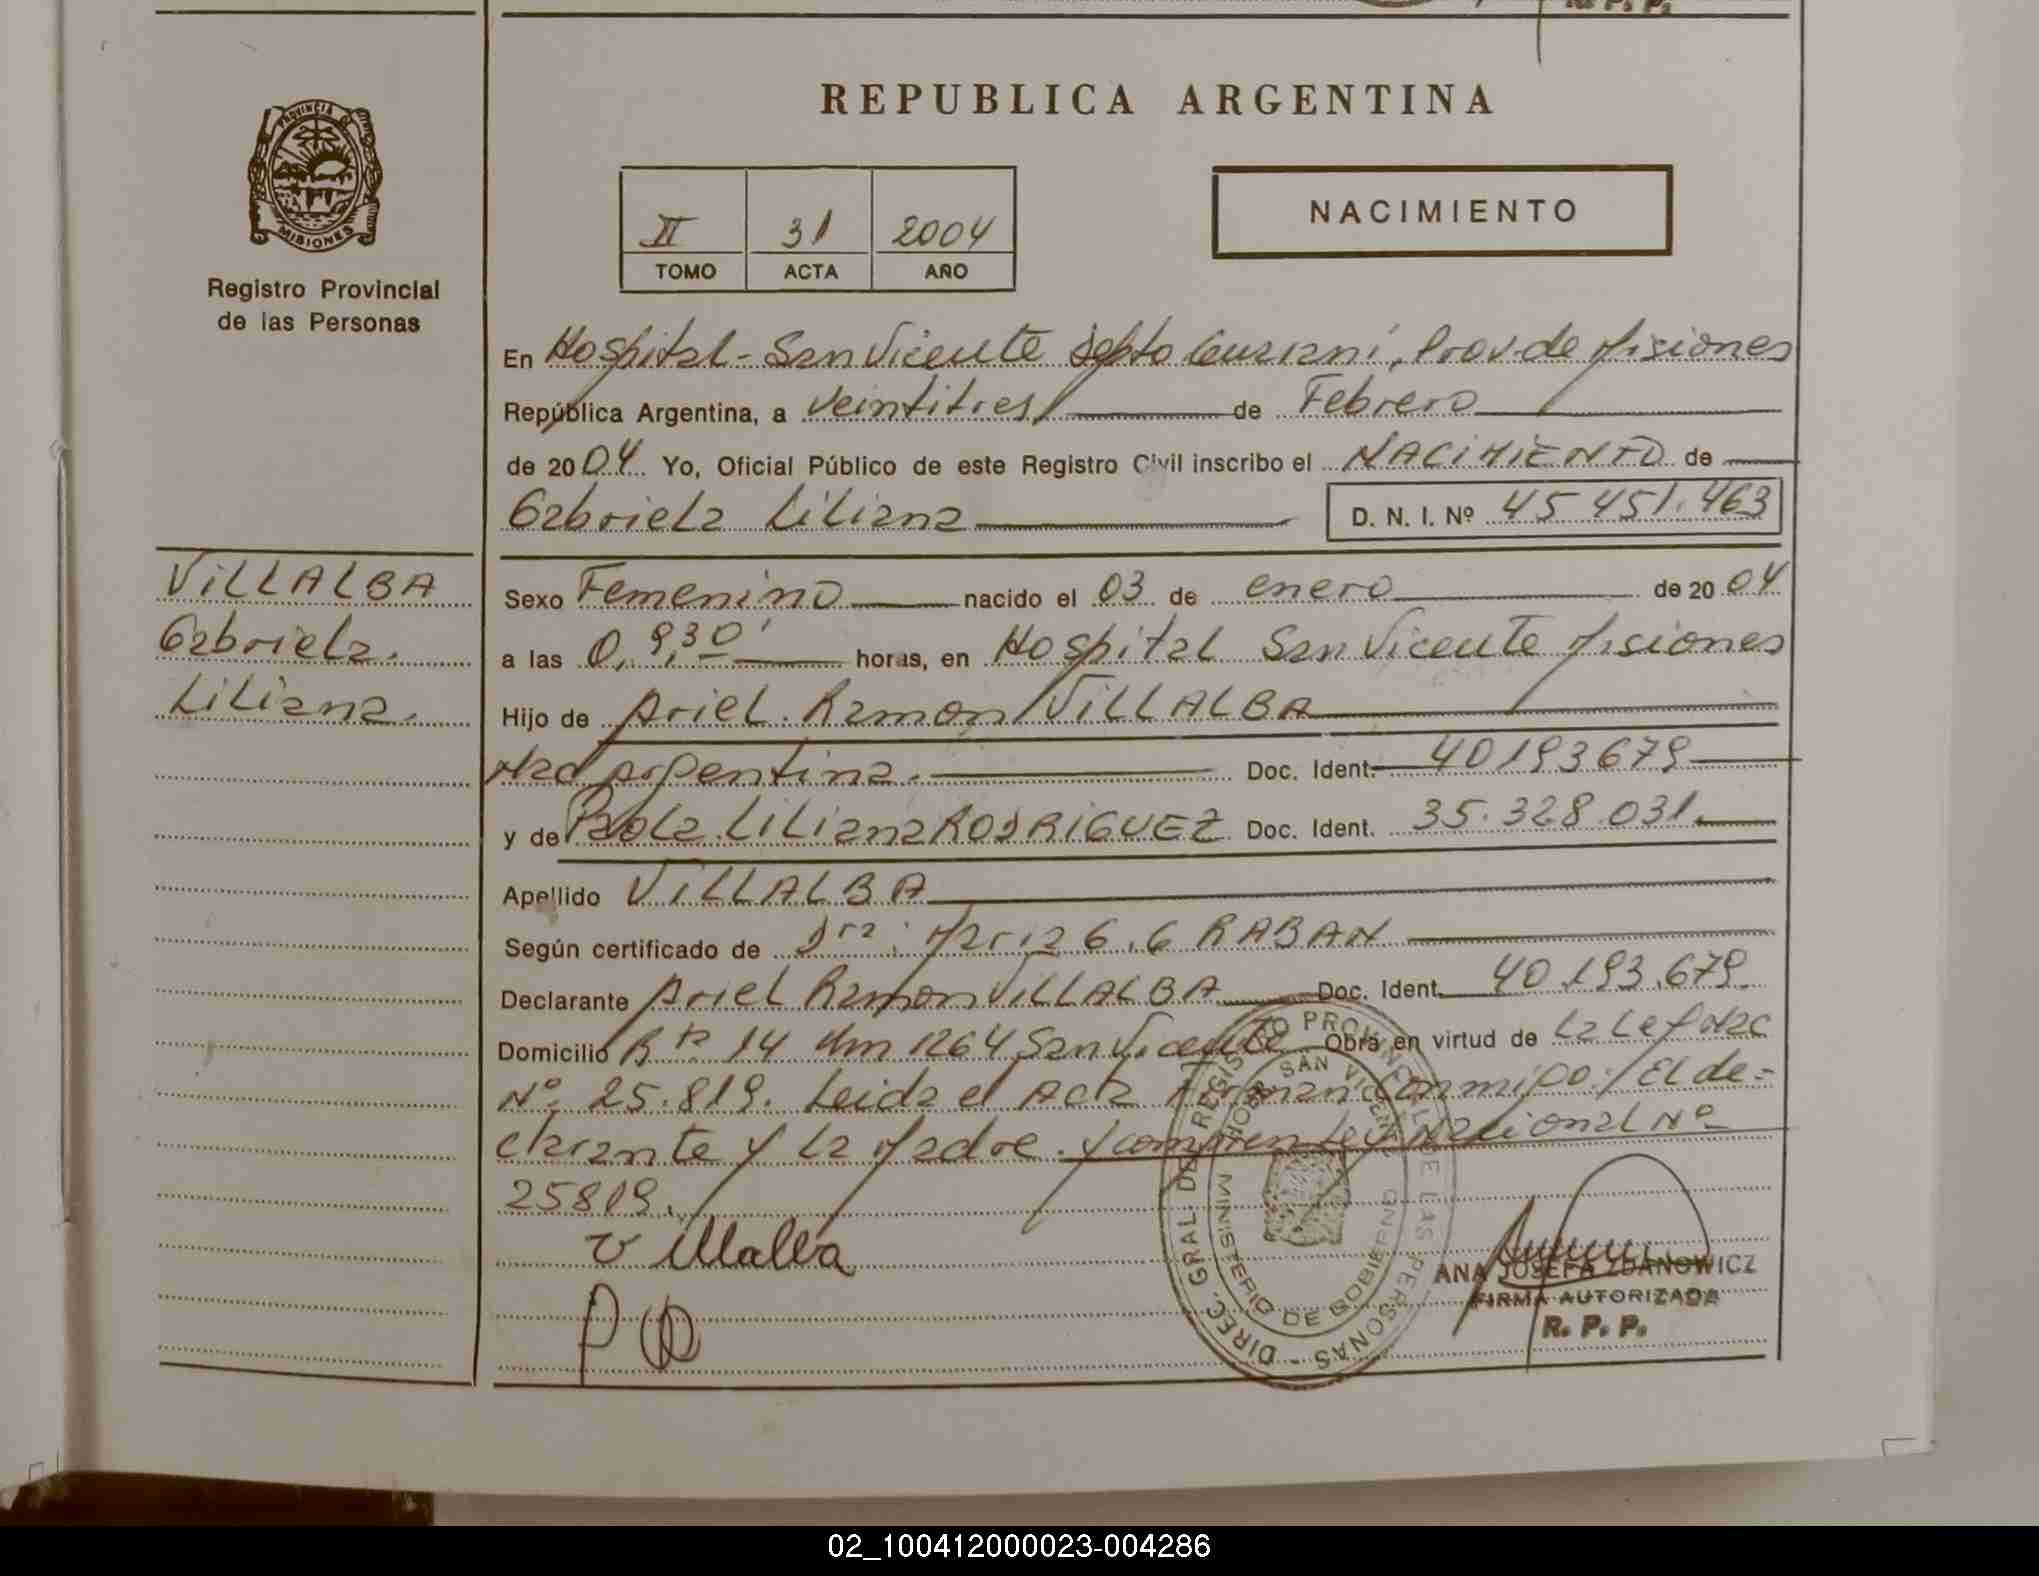 R. P. P.
REPUBLICA ARGENTINA
PROVINCIA DE
MISIONES
Registro Provincial
de las Personas
II 31 2004
TOMO ACTA AÑO
NACIMIENTO
En Hospital - San Vicente Depto Guarani, Prov. de Misiones
República Argentina, a veintitres de Febrero
de 2004 Yo, Oficial Público de este Registro Civil inscribo el NACIMIENTO de
Gabriela Liliana D. N. I. Nº 45 451.463
VILLALBA
Gabriela.
Liliana.
Sexo Femenino nacido el 03 de enero de 2004
a las 0,9,30' horas, en Hospital San Vicente Misiones
Hijo de Ariel. Ramon VILLALBA
Nac Argentina. Doc. Ident. 40193679
y de Paola Liliana RODRIGUEZ Doc. Ident. 35.328.031.
Apellido VILLALBA
Según certificado de Dra: Maria G. G RABAN
Declarante Ariel Ramon VILLALBA Doc. Ident. 40.193.679.
Domicilio R ta 14 Km 1264 San Vicente Obra en virtud de La Ley Nac
Nº 25.819. Leida el Acta Firman Conmigo: El de-
clarante y La Madre. y Ley Nacional Nº
25819.
Villalba
P R
DIREC. GRAL. DE REGISTRO PROVINCIAL DE LAS PERSONAS
MINISTERIO DE GOBIERNO
SAN VICENTE
ANA JOSEFA ZDANOWICZ
FIRMA AUTORIZADA
R. P. P.
02_100412000023-004286